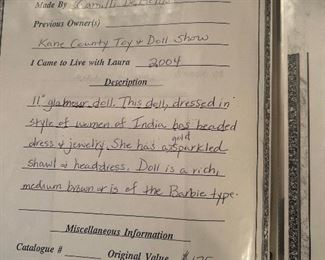 Made By Camille
Previous Owner(s)
Kane County Toy & Doll Show
I Came to Live with Laura 2004
Description
11" glamour doll. This doll, dressed in
style of women of India has beaded
dress & jewelry. She has a gold sparkled
shawl & headdress. Doll is a rich
medium brown & is of the Barbie type.
Miscellaneous Information
Catalogue # Original Value